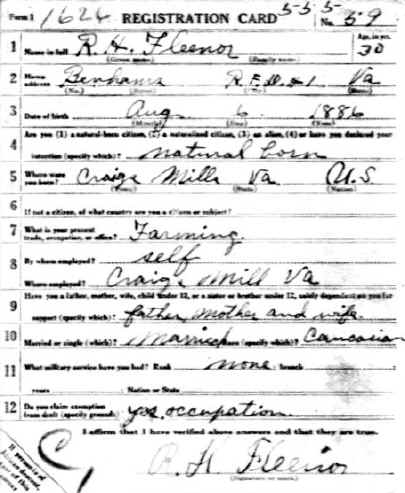 Form 1 1624 REGISTRATION CARD 5-5-5 No. 59
1 Name in full R. H. Fleenor Age, in yrs. 30
(Given name) (Family name)
2 Home address Benhams R.F.D. #1 Va
(No.) (Street) (State)
3 Date of birth Aug 6 1886
(Month) (Day) (Year)
4 Are you (1) a natural-born citizen, (2) a naturalized citizen, (3) an alien, (4) or have you declared your
intention (specify which)? natural born
5 Where were you born? Craigs Mills Va U.S
(Town) (State) (Nation)
6 If not a citizen, of what country are you a citizen or subject?
7 What is your present trade, occupation, or office? Farming
8 By whom employed? self
Where employed? Craigs Mill Va
9 Have you a father, mother, wife, child under 12, or a sister or brother under 12, solely dependent on you for
support (specify which)? father, mother and wife
10 Married or single (which)? Married Race (specify which)? Caucasian
11 What military service have you had? Rank none ; branch
years Nation or State
12 Do you claim exemption from draft (specify grounds)? yes, occupation
I affirm that I have verified above answers and that they are true.
R. H. Fleenor
(Signature or mark)